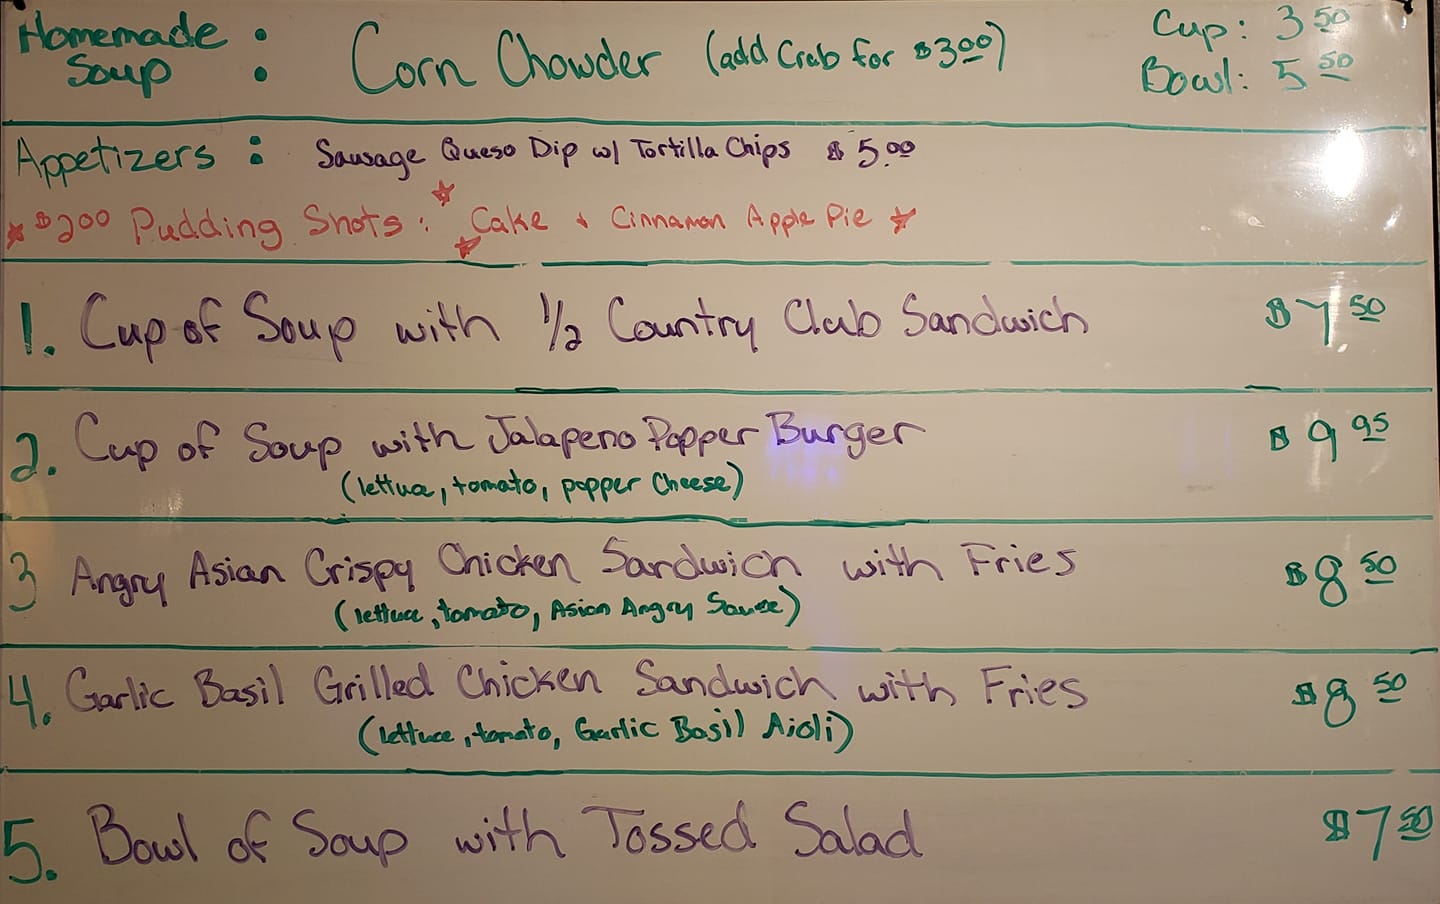 Homemade Soup : Corn Chowder (add Crab for $3.00) Cup: 3.50
Bowl: 5.50
Appetizers : Sausage Queso Dip w/ Tortilla Chips $ 5.00
$2.00 Pudding Shots : Cake + Cinnamon Apple Pie
1. Cup of Soup with 1/2 Country Club Sandwich $7.50
2. Cup of Soup with Jalapeno Popper Burger $9.95
(lettuce, tomato, popper Cheese)
3 Angry Asian Crispy Chicken Sandwich with Fries $8.50
(lettuce, tomato, Asian Angry Sauce)
4. Garlic Basil Grilled Chicken Sandwich with Fries $8.50
(lettuce, tomato, Garlic Basil Aioli)
5. Bowl of Soup with Tossed Salad $7.50